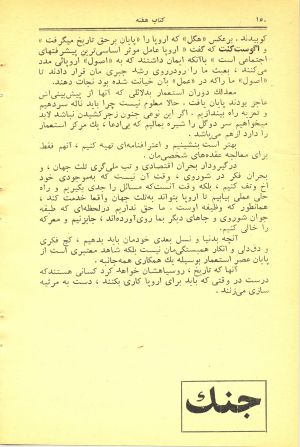 ۱۵۰ کتاب هفته
کوبیدند. برعکس «هگل» که اروپا را «پایان برحق تاریخ میگرفت»
و اگوست‌کنت که گفت « اروپا عامل موثر اساسی‌ترین پیشرفتهای
اجتماعی است » باآنکه ایمان داشتند که به «اصول» اروپائی مدد
می‌کنند ، بعبث ما را رودرروی رشد جبری مان قرار دادند تا
«اصول» ما را که در «عمل» بآن خیانت شده بود نجات دهند.
معذلک دوران استعمار بدلائلی که آنها از پیش‌بینی‌اش
عاجز بودند پایان یافت . حالا معلوم نیست چرا باید ناله سردهیم
و تجربه راه بیندازیم . اگر این نوعی جنون زجرکشیدن نباشد لابد
میخواهیم سر دوگل را شیره بمالیم که بی‌ادما، یک مرکز استعمار
را دارد ازهم می‌باشد .
بهتر است بنشینیم و اعترافنامه‌ای تهیه کنیم ، آنهم فقط
برای معالجه عقده‌های شخصی‌مان .
درگیرودار بحران اقتصادی و تب ملی‌گری ثلث جهان ، و
بحران فکر در شوروی ، وقت آن نیست که به‌موجودی خود
اخ وتف کنیم ، بلکه وقت آنست‌که مسائل را جدی بگیریم و راه
حلی عملی بیابیم تا اروپا بتواند به‌ثلث جهان واقعا خدمت کند ،
همانطور که وظیفه اوست . ما حق نداریم درلحظه‌ای که طبقه
جوان شوروی و جاهای دیگر بما روی‌آورده‌اند ، جابزنیم و معرکه
را خالی کنیم.
آنچه بدنیا و نسل بعدی خودمان باید بدهیم ، کج فکری
و دق‌دلی و انکار همبستگی‌مان نیست بلکه شاهد معتبری است از
پایان عصر استعمار بوسیله یك همکاری همه‌جانبه .
آنها که تاریخ ، روسیاهشان خواهد کرد کسانی هستندکه
درست در وقتی که باید برای اروپا کاری بکنند ، دست به مرثیه
سازی می‌زنند .
جنك